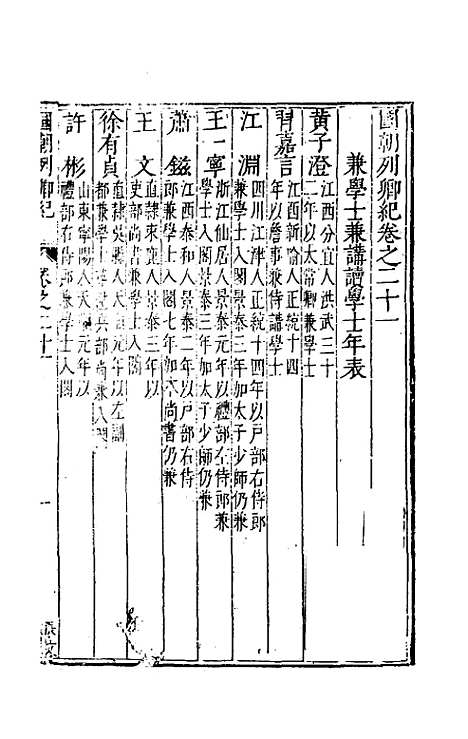 國朝列卿紀卷之二十一
兼學士兼講讀學士年表
黄子澄
江西分宜人洪武三十
二年以太常卿兼學士
嘉言
江西新喻人正統十四
年以詹事兼侍講學士
江淵
四川江津人正統十四年以戸部右侍郎
兼學士入閣景泰三年加太子少師仍兼
王一寧
浙江仙居人景泰元年以禮部左侍郎兼
學士入閣景泰三年加太子少師仍兼
蕭鎡
江西泰和人景泰二年以戸部右侍
郎兼學士入閣七年加尚書仍兼
王文
直隸束鹿人景泰三年以
吏部尚書兼學士入閣
徐有貞
直隸吳縣人天順元年以左副
都兼學士陞兵部尚兼入閣
許彬
山東寧陽人天順元年以
禮部右侍郎兼學士入閣
國朝列卿紀
卷之二十一
一